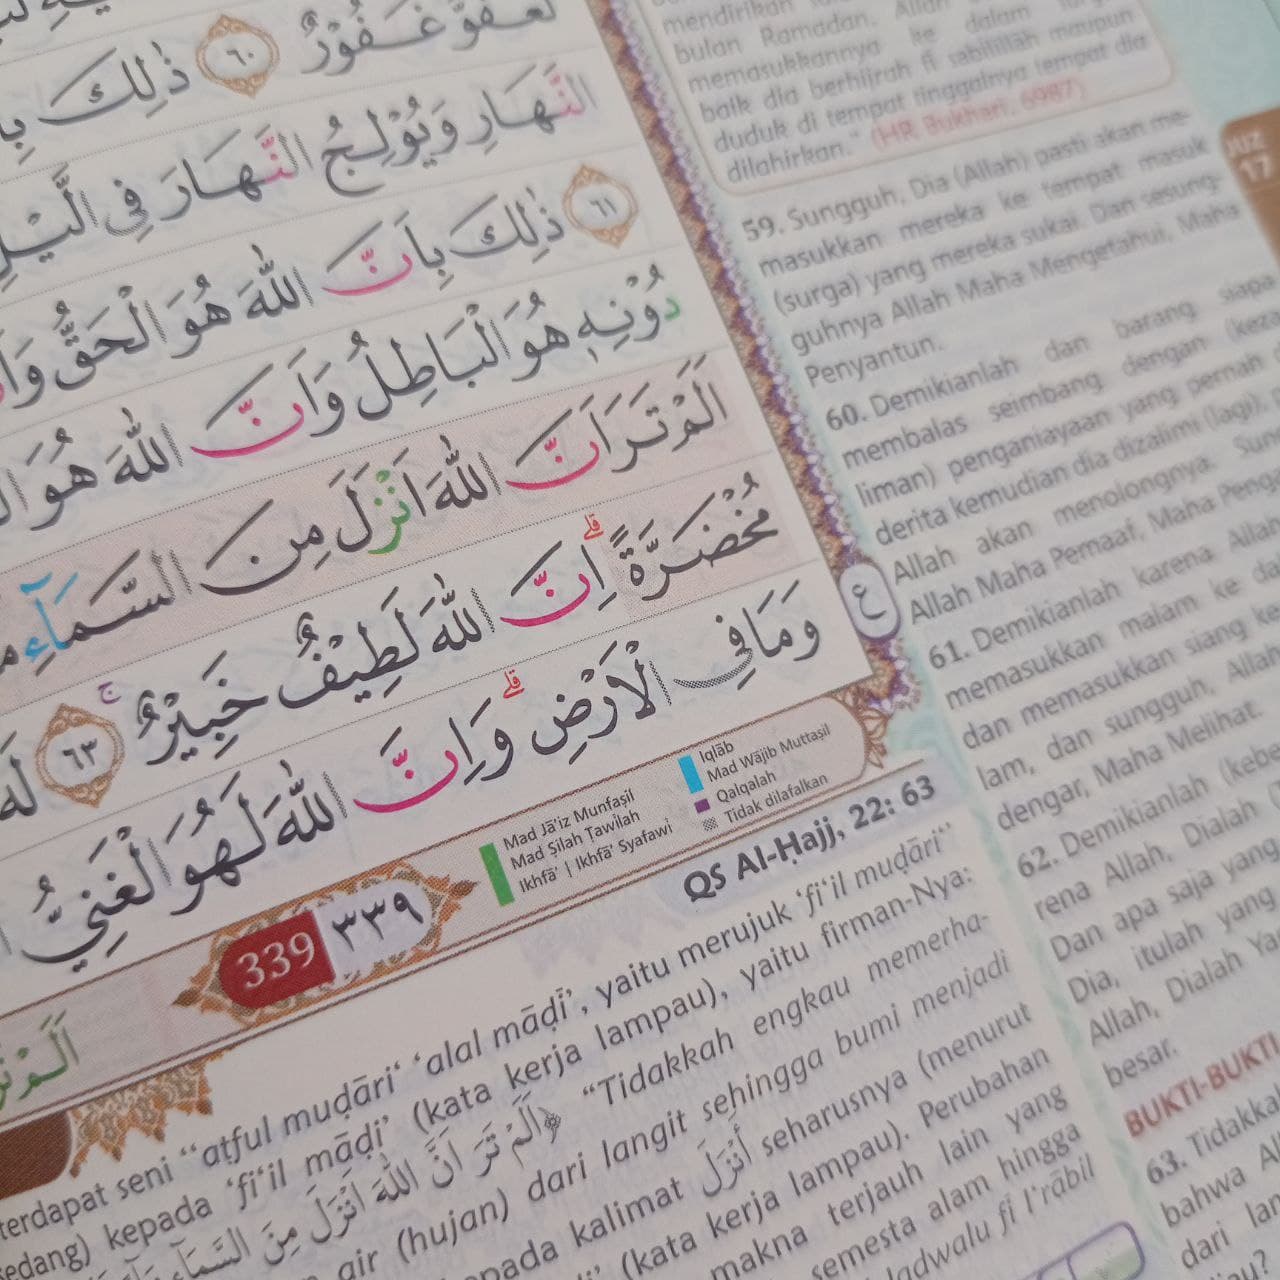 لَعَفُوٌّ غَفُوْرٌ ٦٠ ذٰلِكَ
النَّهَارِ وَيُوْلِجُ النَّهَارَ فِى الَّيْلِ
٦١ ذٰلِكَ بِاَنَّ اللّٰهَ هُوَ الْحَقُّ
دُوْنِهٖ هُوَ الْبَاطِلُ وَاَنَّ اللّٰهَ هُوَ
اَلَمْ تَرَ اَنَّ اللّٰهَ اَنْزَلَ مِنَ السَّمَاۤءِ
مُخْضَرَّةًۗ اِنَّ اللّٰهَ لَطِيْفٌ خَبِيْرٌۚ ٦٣
وَمَا فِى الْاَرْضِۗ وَاِنَّ اللّٰهَ لَهُوَ الْغَنِيُّ
ع
Mad Jā'iz Munfaṣil
Mad Ṣilah Ṭawīlah
Ikhfā' | Ikhfā' Syafawi
Iqlāb
Mad Wājib Muttaṣil
Qalqalah
Tidak dilafalkan
339 ٣٣٩
QS Al-Ḥajj, 22: 63
terdapat seni "aṭful muḍāri' 'alal māḍī', yaitu merujuk 'fi'il muḍāri'
kepada 'fi'il māḍi' (kata kerja lampau), yaitu firman-Nya:
اَلَمْ تَرَ اَنَّ اللّٰهَ اَنْزَلَ مِنَ السَّمَاۤءِ "Tidakkah engkau memerha-
air (hujan) dari langit sehingga bumi menjadi
kalimat أَنْزَلَ seharusnya (menurut
(kata kerja lampau). Perubahan
makna terjauh lain yang
semesta alam hingga
fī I'rābil
mendirikan
bulan Ramadan, Allah
memasukkannya ke dalam
baik dia berhijrah fi sabilillah maupun
duduk di tempat tinggalnya tempat dia
dilahirkan." (HR Bukhari, 6987)
JUZ
17
59. Sungguh, Dia (Allah) pasti akan me-
masukkan mereka ke tempat masuk
(surga) yang mereka sukai. Dan sesung-
guhnya Allah Maha Mengetahui, Maha
Penyantun.
60. Demikianlah dan barang siapa
membalas seimbang dengan
liman) penganiayaan yang pernah
derita kemudian dia dizalimi (lagi),
Allah akan menolongnya.
Allah Maha Pemaaf, Maha
61. Demikianlah karena Allah
memasukkan malam ke
dan memasukkan siang ke
lam, dan sungguh, Allah
dengar, Maha Melihat.
62. Demikianlah
rena Allah, Dialah
Dan apa saja yang
Dia, itulah yang
Allah, Dialah
besar.
BUKTI-BUKTI
63.
bahwa
dari